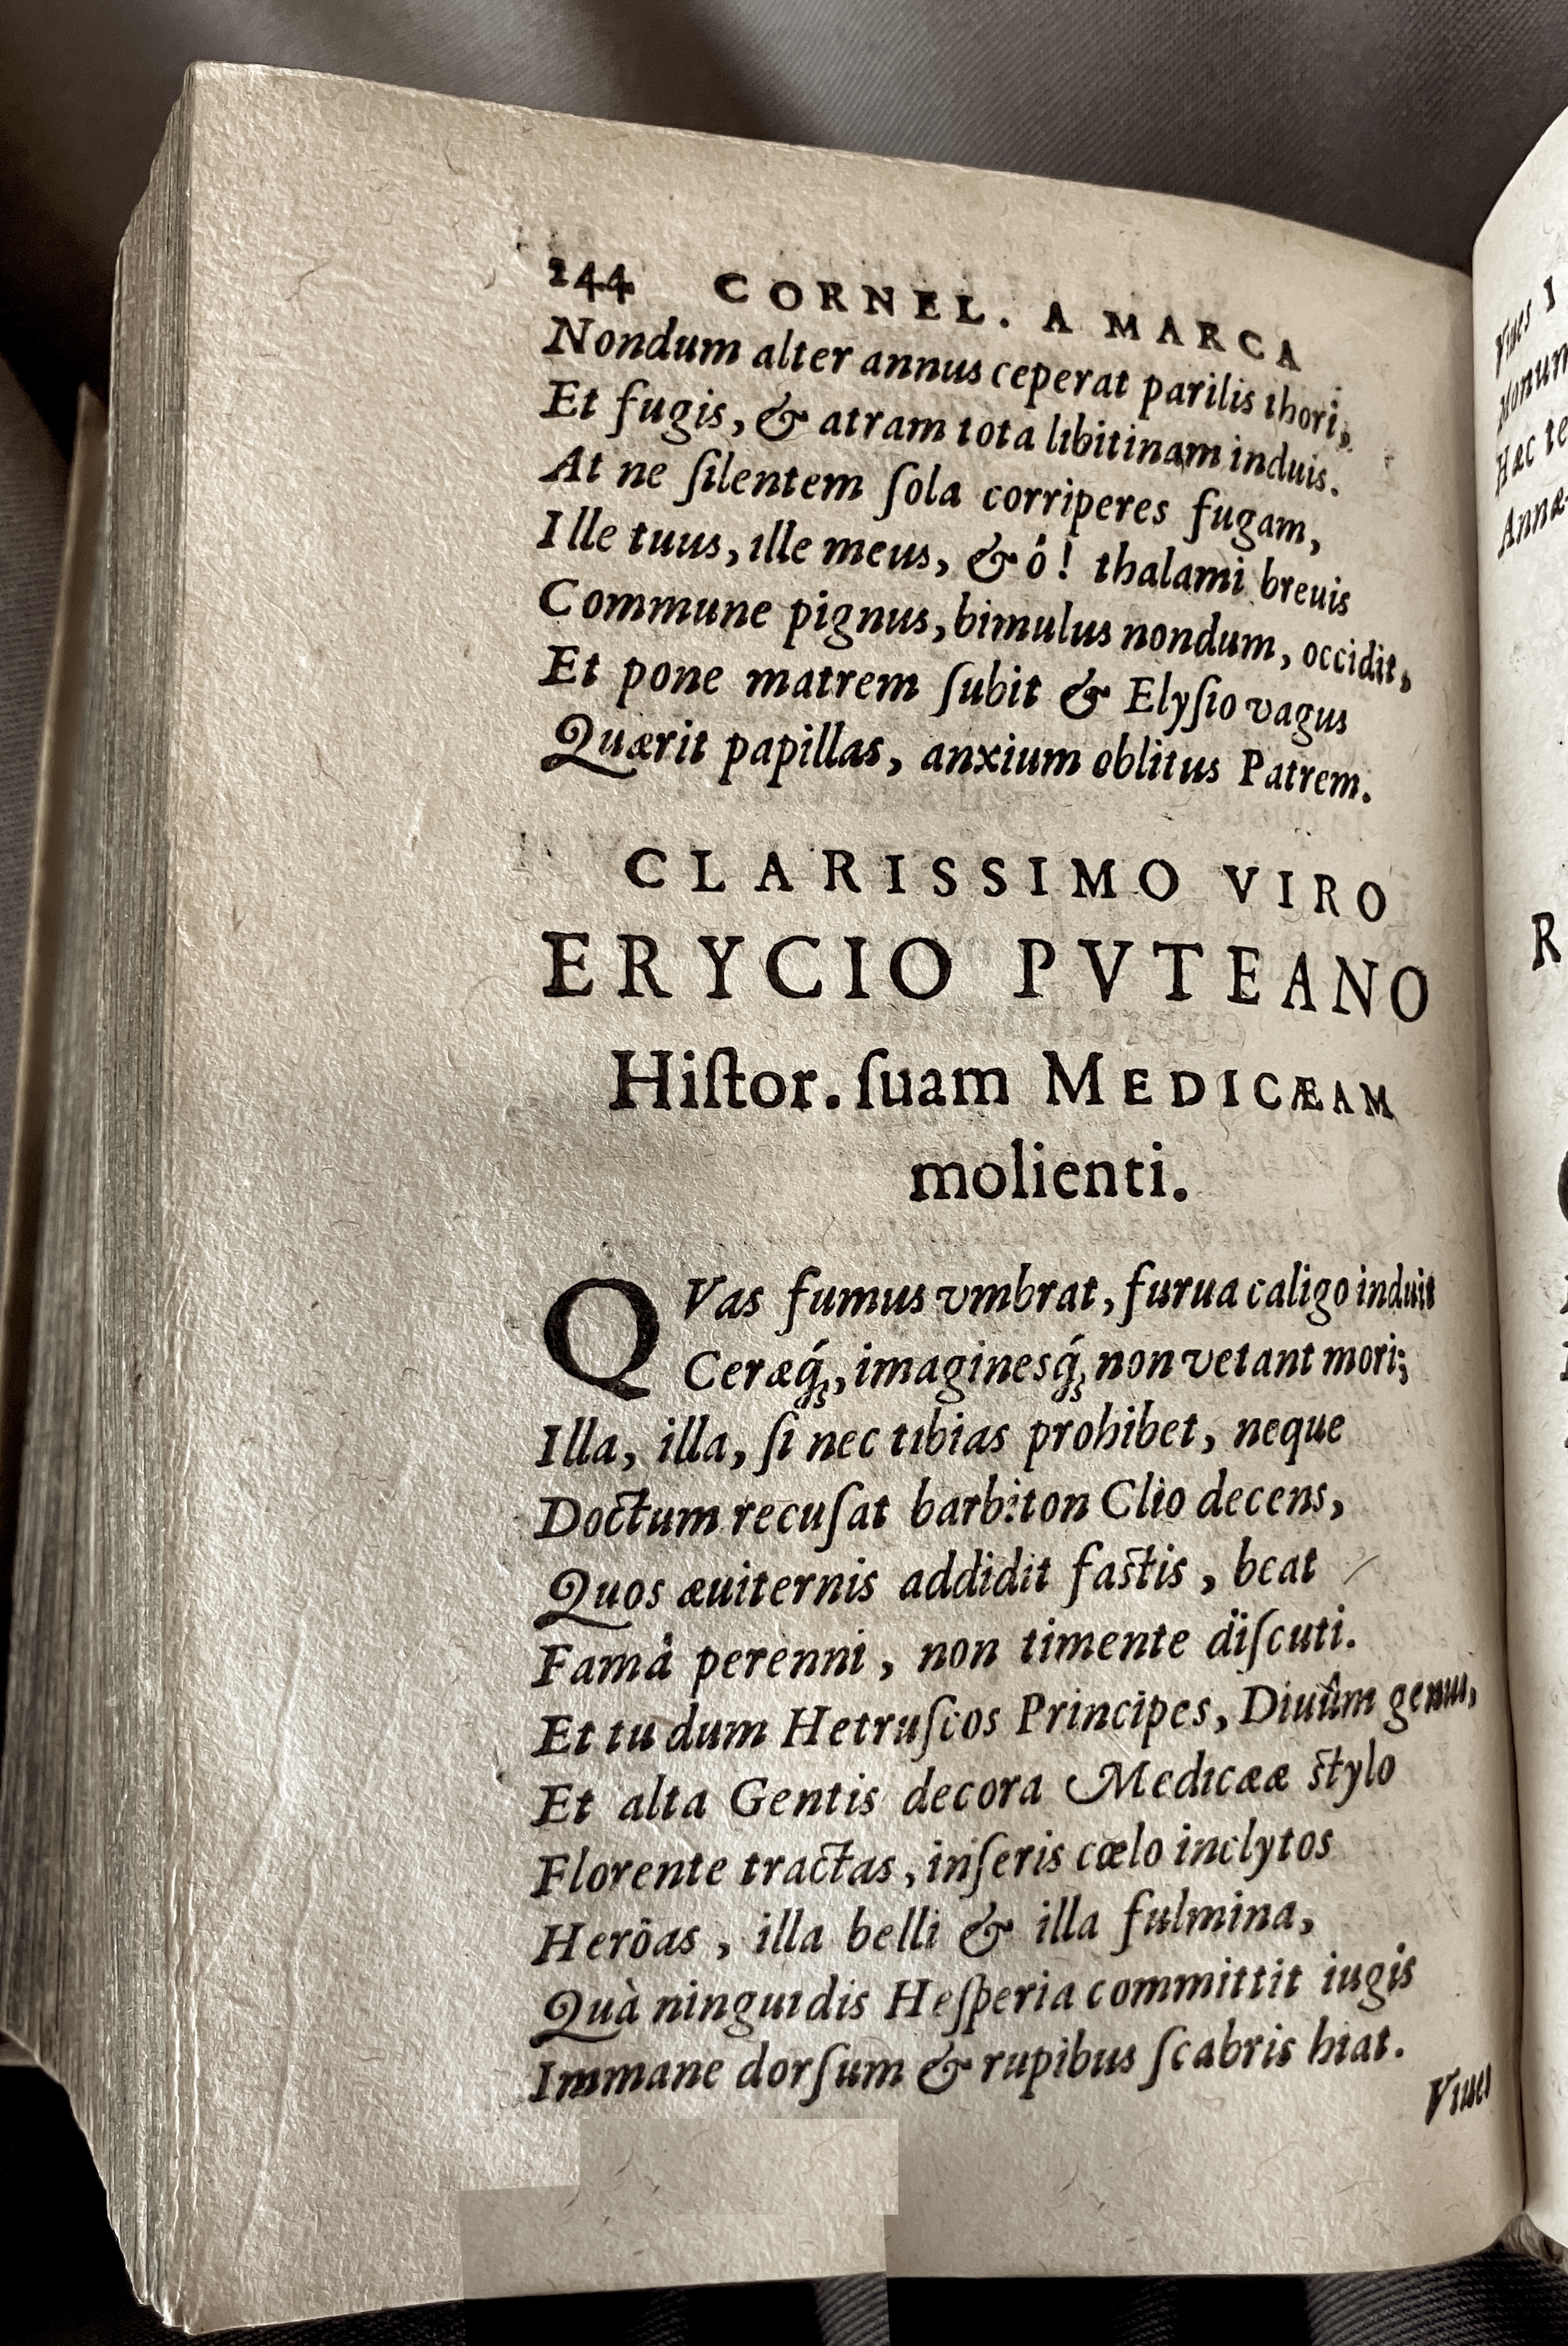 244 CORNEL. A MARCA
Nondum alter annus ceperat parilis thori,
Et fugis, & atram tota libitinam induis.
At ne ſilentem ſola corriperes fugam,
Ille tuus, ille meus, & ó! thalami breuis
Commune pignus, bimulus nondum, occidit,
Et pone matrem ſubit & Elyſio vagus
Quærit papillas, anxium oblitus Patrem.
CLARISSIMO VIRO
ERYCIO PVTEANO
Hiſtor. ſuam MEDICÆAM
molienti.
QVas fumus vmbrat, furua caligo induit
Ceræq́;, imaginesq́; non vetant mori;
Illa, illa, ſi nec tibias prohibet, neque
Doctum recuſat barbiton Clio decens,
Quos æuiternis addidit faſtis, beat
Famâ perenni, non timente diſcuti.
Et tu dum Hetruſcos Principes, Diuûm genus,
Et alta Gentis decora Medicææ ſtylo
Florente tractas, inſeris cœlo inclytos
Heröas, illa belli & illa fulmina,
Quà ninguidis Heſperia committit iugis
Immane dorſum & rupibus ſcabris hiat.
Viues
Viues
Hæc
Annæ
R